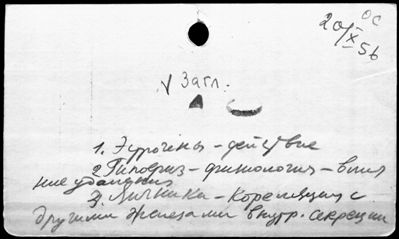 20/X 56
ОС
√ Загл.
1. Эстрогены - действие
2 Гипофиз - физиология - влия
ние удаления
3) Яичника - Корреляция с
другими железами внутр. секреции